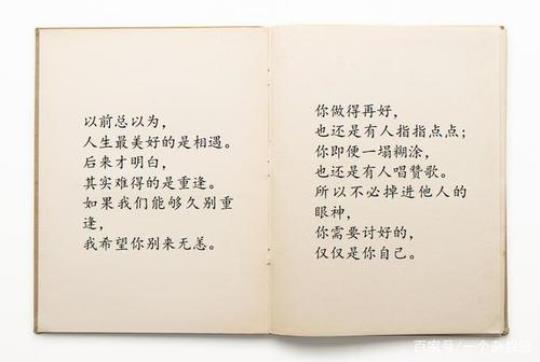 以前总以为，
人生最美好的是相遇。
后来才明白，
其实难得的是重逢。
如果我们能够久别重
逢，
我希望你别来无恙。
你做得再好，
也还是有人指指点点；
你即便一塌糊涂，
也还是有人唱赞歌。
所以不必掉进他人的
眼神，
你需要讨好的，
仅仅是你自己。
百家号/一个